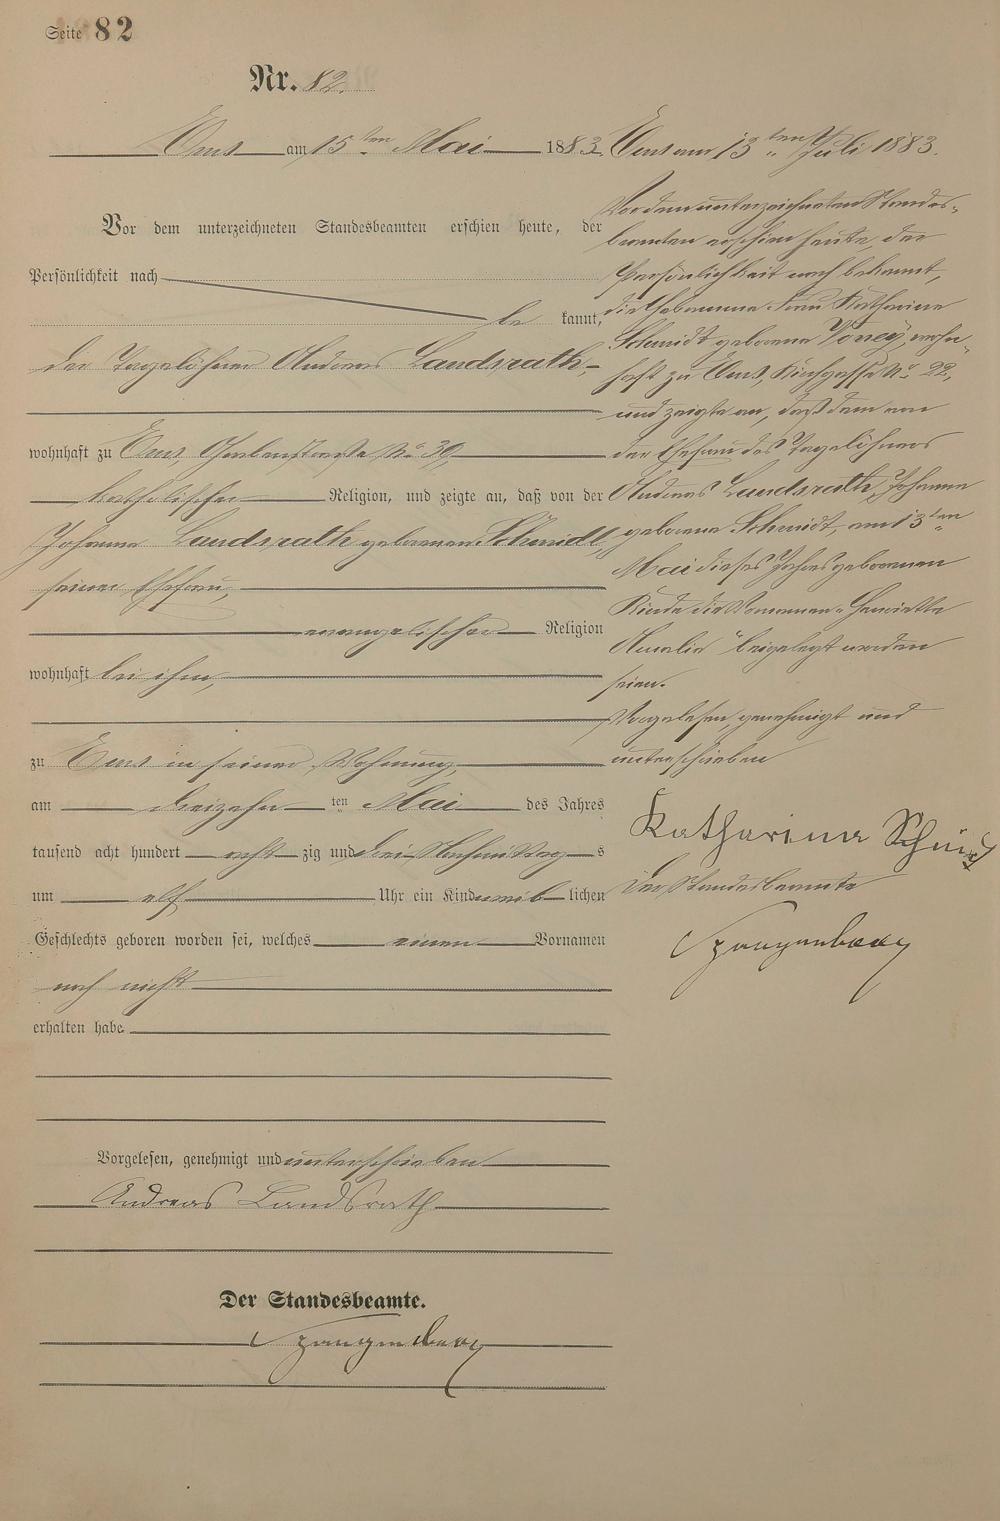 Seite 82
Nr. 82.
Ems am 15ten Mai 1883
Vor dem unterzeichneten Standesbeamten erschien heute, der
Persönlichkeit nach
be kannt,
der Tagelöhner Andreas Landsrath,
wohnhaft zu Ems, No 30,
katholischer Religion, und zeigte an, daß von der
Johanna Landsrath geborenen Schmidt,
seiner Ehefrau,
evangelischer Religion
wohnhaft bei ihm,
zu Ems in seiner Wohnung,
am dreizehn ten Mai des Jahres
tausend acht hundert acht zig und drei Nachmittag s
um elf Uhr ein Kind weib lichen
Geschlechts geboren worden sei, welches einen Vornamen
noch nicht
erhalten habe
Vorgelesen, genehmigt und unterschrieben
Andreas Landsrath
Der Standesbeamte.
Spangenberg
Ems am 13ten Juli 1883.
Vor dem unterzeichneten Standes-
beamten erschien heute, der
Persönlichkeit nach bekannt,
die Hebamme Frau Katharina
Schmidt geborene wohn-
haft zu Ems, Kirchgasse No 22,
und zeigte an, daß dem von
der Ehefrau des Tagelöhners
Andreas Landsrath, Johanna
geborene Schmidt, am 13ten
Mai dieses Jahres geborenen
Kinde die Vornamen "Henriette
Amalie" beigelegt worden
seien.
Vorgelesen, genehmigt und
unterschrieben
Katharina Schmidt
Der Standesbeamte
Spangenberg